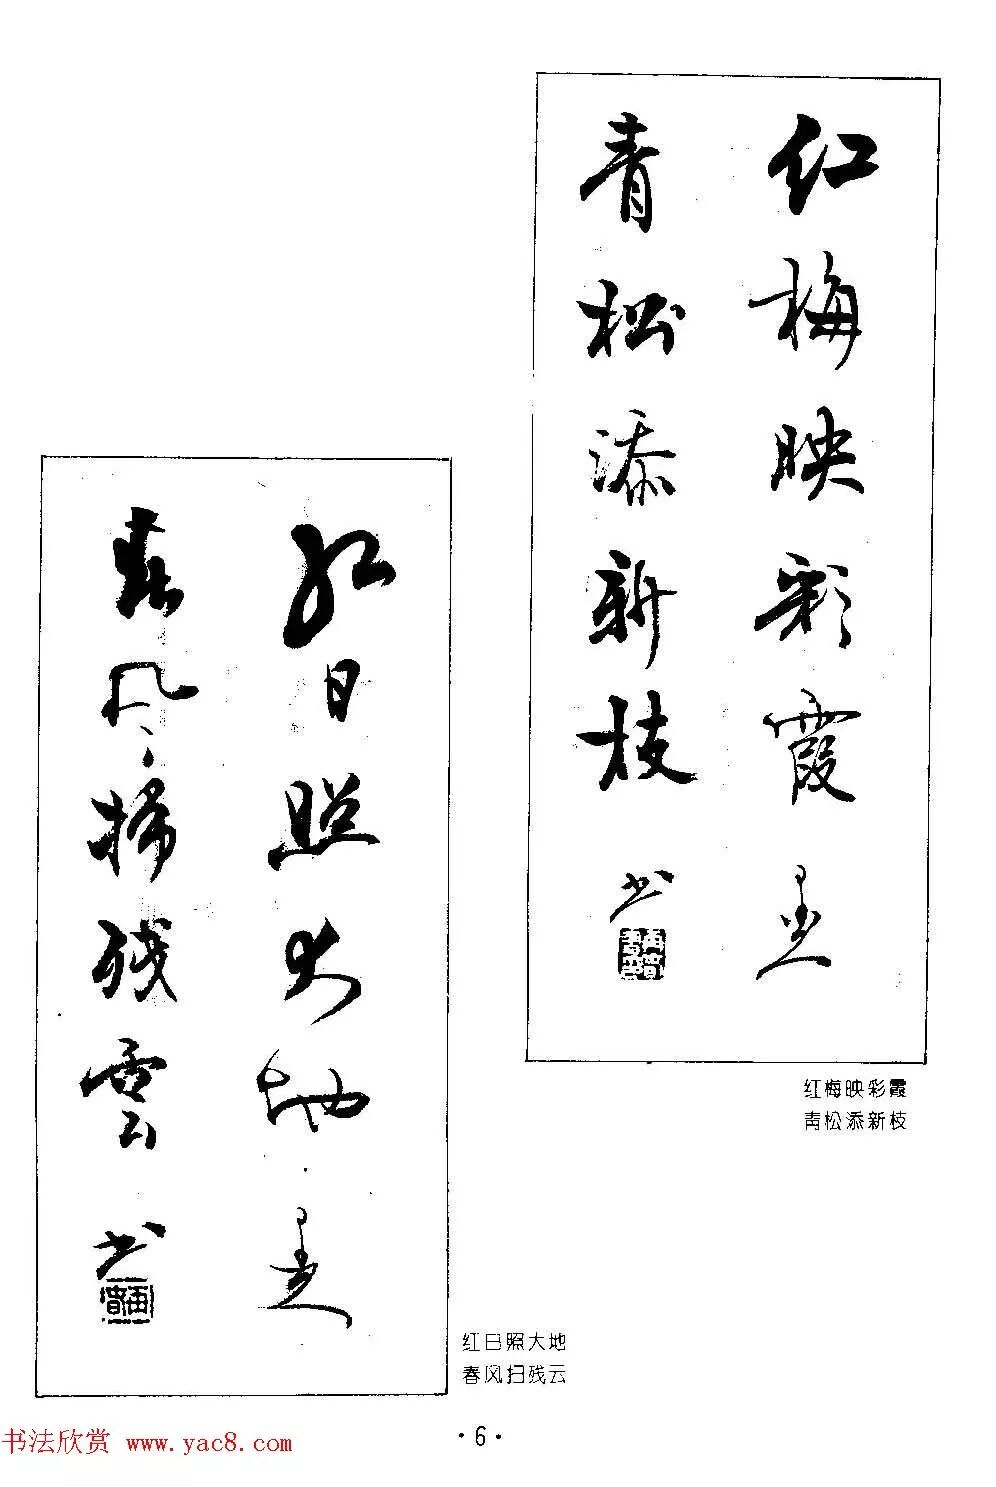 红梅映彩霞
青松添新枝
书
红梅映彩霞
青松添新枝
红日照大地
春风扫残云
书
红日照大地
春风扫残云
·6·
书法欣赏 www.yac8.com